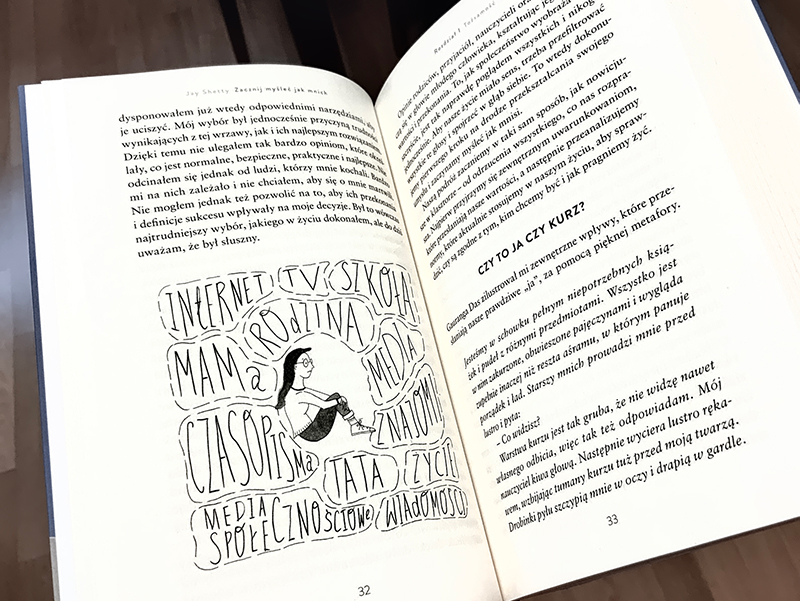 Jay Shetty Zacznij myśleć jak mnich
dysponowałem już wtedy odpowiednimi narzędziami, by
je uciszyć. Mój wybór był jednocześnie przyczyną trudno
wynikających z tej wrzawy, jak i ich najlepszym rozwiązan
Dzięki temu nie ulegałem tak bardzo opiniom, które okre
lały, co jest normalne, bezpieczne, praktyczne i najlepsze. N
odcinałem się jednak od ludzi, którzy mnie kochali. Bardzo
mi na nich zależało i nie chciałem, aby się o mnie martwi
Nie mogłem jednak też pozwolić na to, aby ich przekona
i definicje sukcesu wpływały na moje decyzje. Był to wówcza
najtrudniejszy wybór, jakiego w życiu dokonałem, ale do dziś
uważam, że był słuszny.
INTERNET
TV
SZKOŁA
RODZINA
MAMA
MEDIA
CZASOPISMA
ZNAJOMI
TATA
ŻYCIE
MEDIA
SPOŁECZNOŚCIOWE
WIADOMOŚCI
32
Rozdział 1 Tożsamość
Opinie rodziców, przyjaciół, nauczycieli ora
czą się w głowie młodego człowieka, kształtując jeg
wartości i przekonania. To, jak społeczeństwo wyobraża
szczęście, jest tak naprawdę poglądem wszystkich i nikog
jednocześnie. Aby nasze życie miało sens, trzeba przefiltrować
wszystkie te głosy i spojrzeć w głąb siebie. To wtedy dokonu-
jemy pierwszego kroku na drodze przekształcania swojego
umysłu i zaczynamy myśleć jak mnisi.
Naszą podróż zaczniemy w taki sam sposób, jak nowicju-
sze w klasztorze – od odrzucenia wszystkiego, co nas rozpra-
sza. Najpierw przyjrzymy się zewnętrznym uwarunkowaniom,
które przesłaniają nasze wartości, a następnie przeanalizujemy
normy, które aktualnie stosujemy w naszym życiu, aby spraw-
dzić, czy są zgodne z tym, kim chcemy być i jak pragniemy żyć.
CZY TO JA CZY KURZ?
Gauranga Das zilustrował mi zewnętrzne wpływy, które prze-
słaniają nasze prawdziwe „ja”, za pomocą pięknej metafory.
Jesteśmy w schowku pełnym niepotrzebnych ksią-
żek i pudeł z różnymi przedmiotami. Wszystko jest
w nim zakurzone, obwieszone pajęczynami i wygląda
zupełnie inaczej niż reszta aśramu, w którym panuje
porządek i ład. Starszy mnich prowadzi mnie przed
lustro i pyta:
– Co widzisz?
Warstwa kurzu jest tak gruba, że nie widzę nawet
własnego odbicia, więc tak też odpowiadam. Mój
nauczyciel kiwa głową. Następnie wyciera lustro ręka-
wem, wzbijając tumany kurzu tuż przed moją twarzą.
Drobinki pyłu szczypią mnie w oczy i drapią w gardle.
33